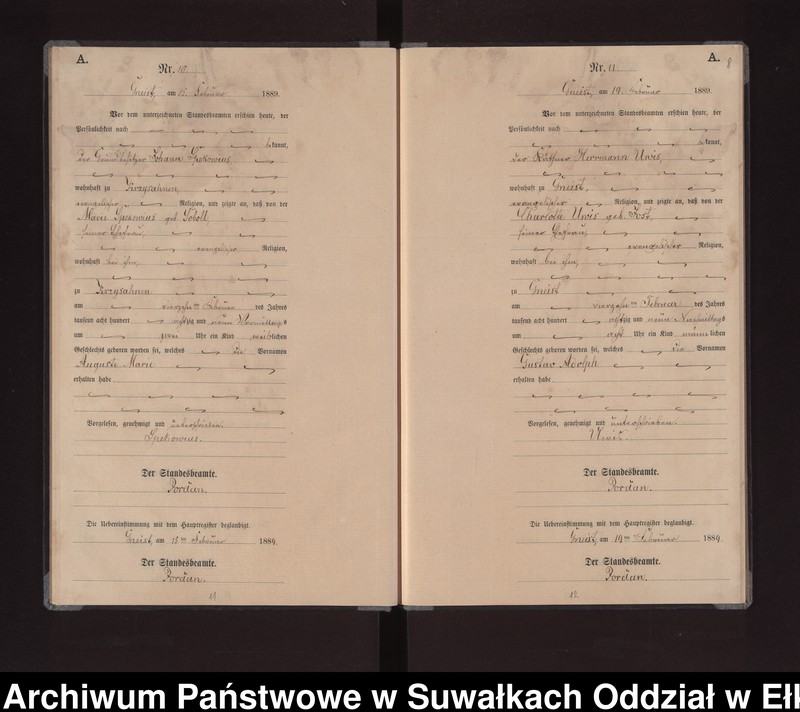 A.
Nr. 10.
Gneist, am 15. Februar 1889.
Vor dem unterzeichneten Standesbeamten erschien heute, der
Persönlichkeit nach
kannt,
der Grundbesitzer Johann
wohnhaft zu Krzysahnen,
evangelischer Religion, und zeigte an, daß von der
Marie geb.
seiner Ehefrau,
evangelischer Religion,
wohnhaft bei ihm,
zu Krzysahnen
am vierzehnten Februar des Jahres
tausend acht hundert achtzig und neun Vormittags
um zwei Uhr ein Kind weiblichen
Geschlechts geboren worden sei, welches die Vornamen
Auguste Marie
erhalten habe
Vorgelesen, genehmigt und unterschrieben.
Der Standesbeamte.
Pordan.
Die Uebereinstimmung mit dem Hauptregister beglaubigt.
Gneist, am 15ten Februar 1889.
Der Standesbeamte.
Pordan.
11
A.
8
Nr. 11.
Gneist, am 19. Februar 1889.
Vor dem unterzeichneten Standesbeamten erschien heute, der
Persönlichkeit nach
kannt,
der Käthner Herrmann Unis,
wohnhaft zu Gneist,
evangelischer Religion, und zeigte an, daß von der
Charlotte Unis geb. Jost,
seiner Ehefrau,
evangelischer Religion,
wohnhaft bei ihm,
zu Gneist
am vierzehnten Februar des Jahres
tausend acht hundert achtzig und neun Nachmittags
um acht Uhr ein Kind männlichen
Geschlechts geboren worden sei, welches die Vornamen
Gustav Adolph
erhalten habe
Vorgelesen, genehmigt und unterschrieben.
Unis.
Der Standesbeamte.
Pordan.
Die Uebereinstimmung mit dem Hauptregister beglaubigt.
Gneist, am 19ten Februar 1889.
Der Standesbeamte.
Pordan.
12
Archiwum Państwowe w Suwałkach Oddział w Ełk